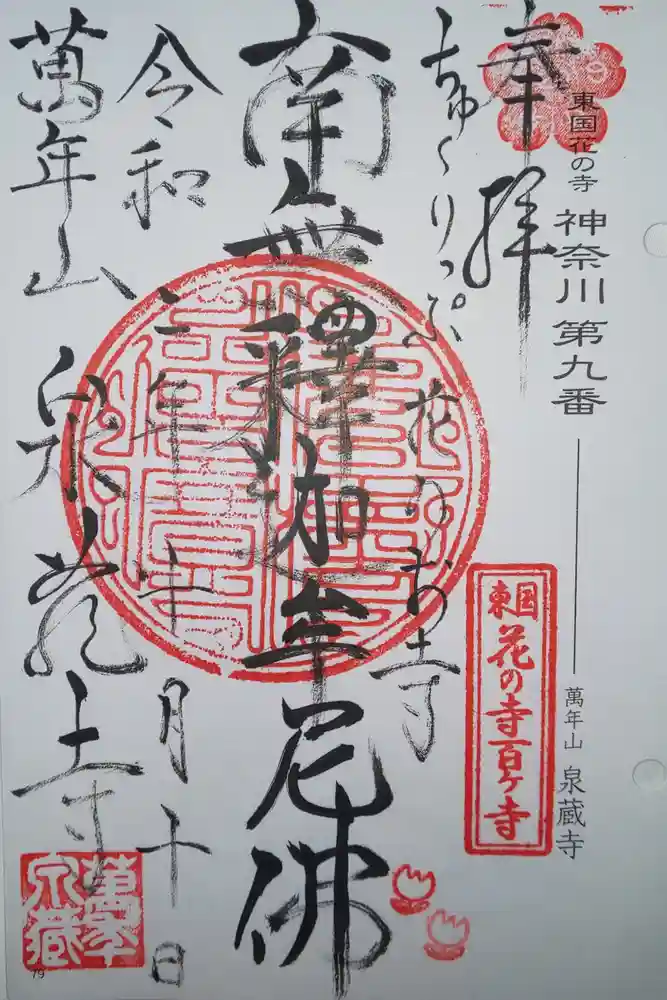 東国花の寺 神奈川 第九番
萬年山 泉蔵寺
奉拝
ちゅーりっぷ花のお寺
南無釋迦牟尼佛
令和三年 月十日
萬年山 泉蔵寺
東国
花の寺百ヶ寺
萬年山
泉蔵
79
9